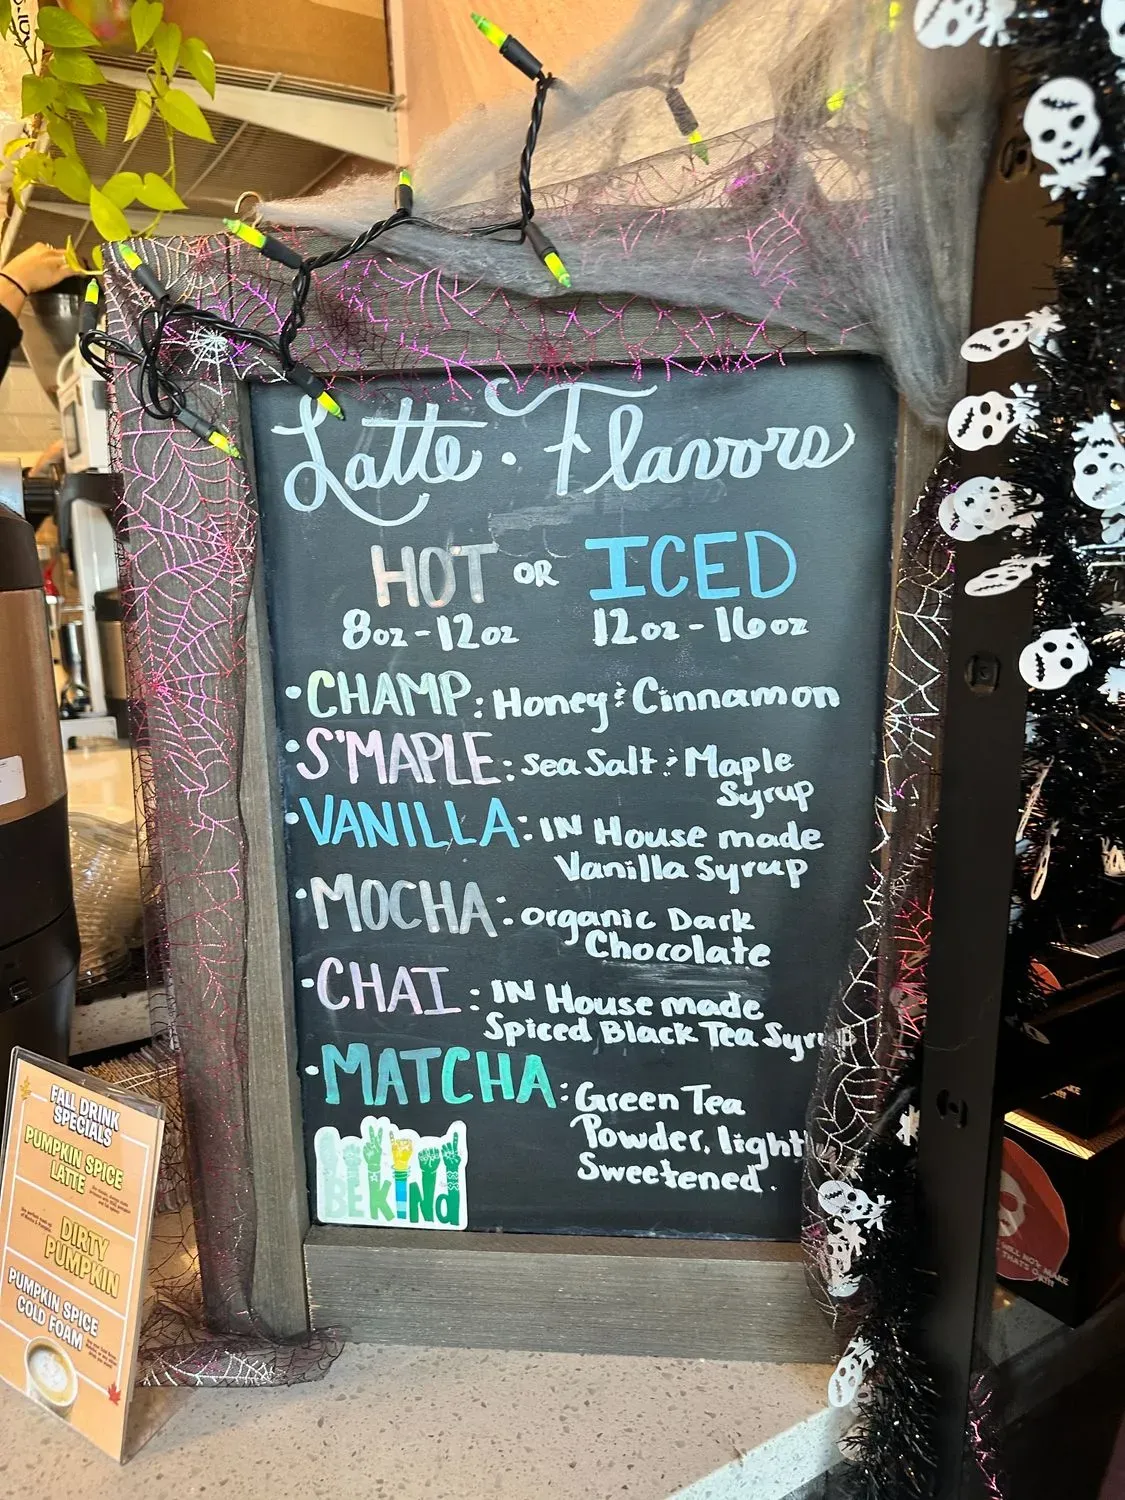 Latte · Flavors
HOT OR ICED
8oz - 12oz 12oz - 16oz
• CHAMP: Honey & Cinnamon
• S'MAPLE: Sea Salt & Maple
Syrup
• VANILLA: IN House made
Vanilla Syrup
• MOCHA: Organic Dark
Chocolate
• CHAI: IN House made
Spiced Black Tea Syrup
• MATCHA: Green Tea
Powder, light
Sweetened.
BE KINd
FALL DRINK
SPECIALS
PUMPKIN SPICE
LATTE
DIRTY
PUMPKIN
PUMPKIN SPICE
COLD FOAM